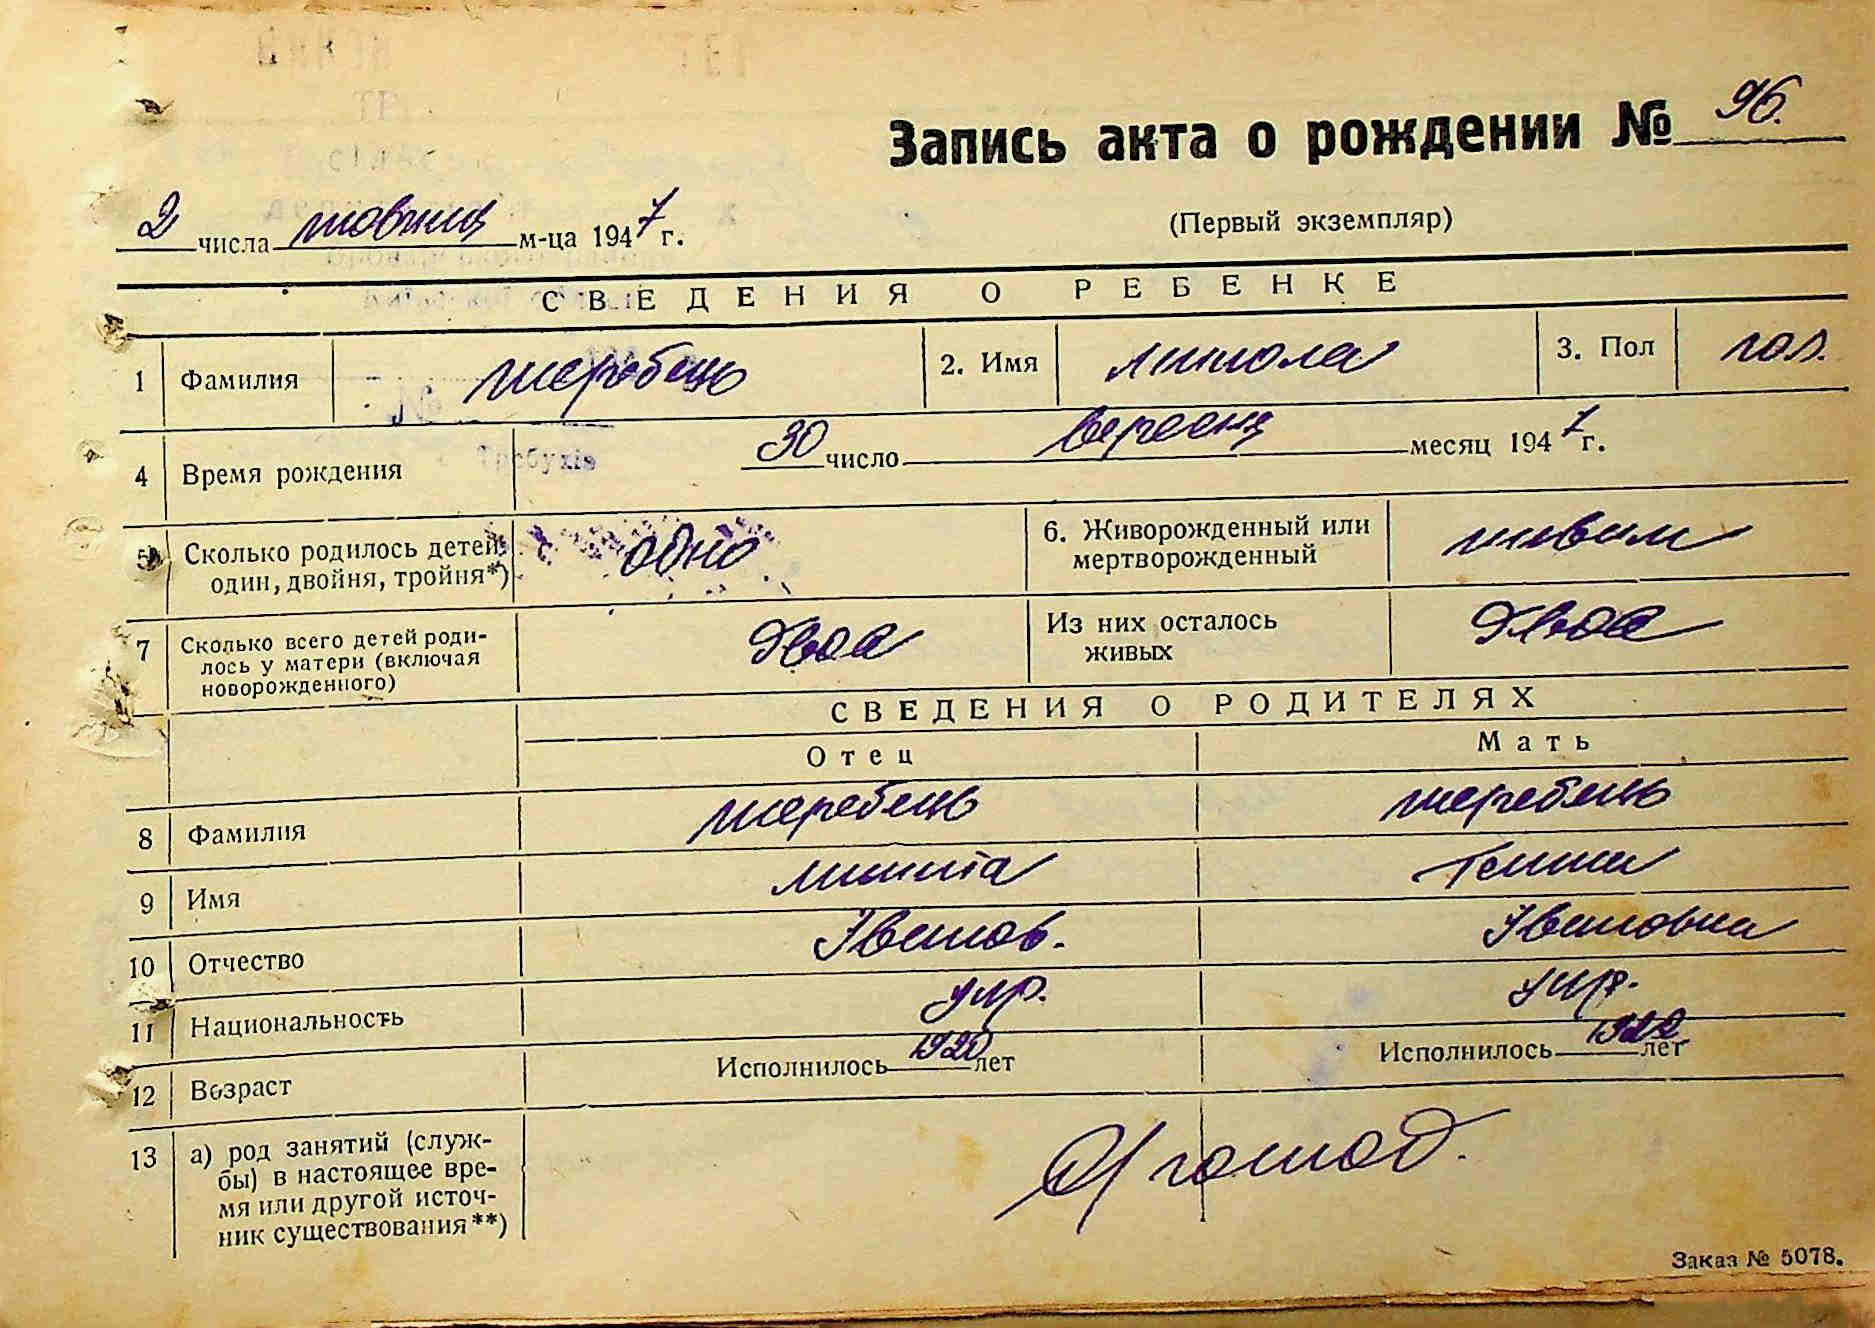 Запись акта о рождении № 96.
2 числа жовтня м-ца 1947 г.
(Первый экземпляр)
СВЕДЕНИЯ О РЕБЕНКЕ
1 Фамилия Жеребець 2. Имя Микола 3. Пол чол.
4 Время рождения 30 число вересня месяц 1947 г.
Требухів
5 Сколько родилось детей: один, двойня, тройня*) одно 6. Живорожденный или мертворожденный живим
7 Сколько всего детей роди-
лось у матери (включая
новорожденного) двоє Из них осталось живых двоє
СВЕДЕНИЯ О РОДИТЕЛЯХ
Отец Мать
8 Фамилия Жеребець Жеребець
9 Имя Микита
10 Отчество Іванов. Івановна
11 Национальность укр. укр.
12 Возраст Исполнилось 1920 лет Исполнилось 1922 лет
13 а) род занятий (служ-
бы) в настоящее вре-
мя или другой источ-
ник существования**)
Заказ № 5078.